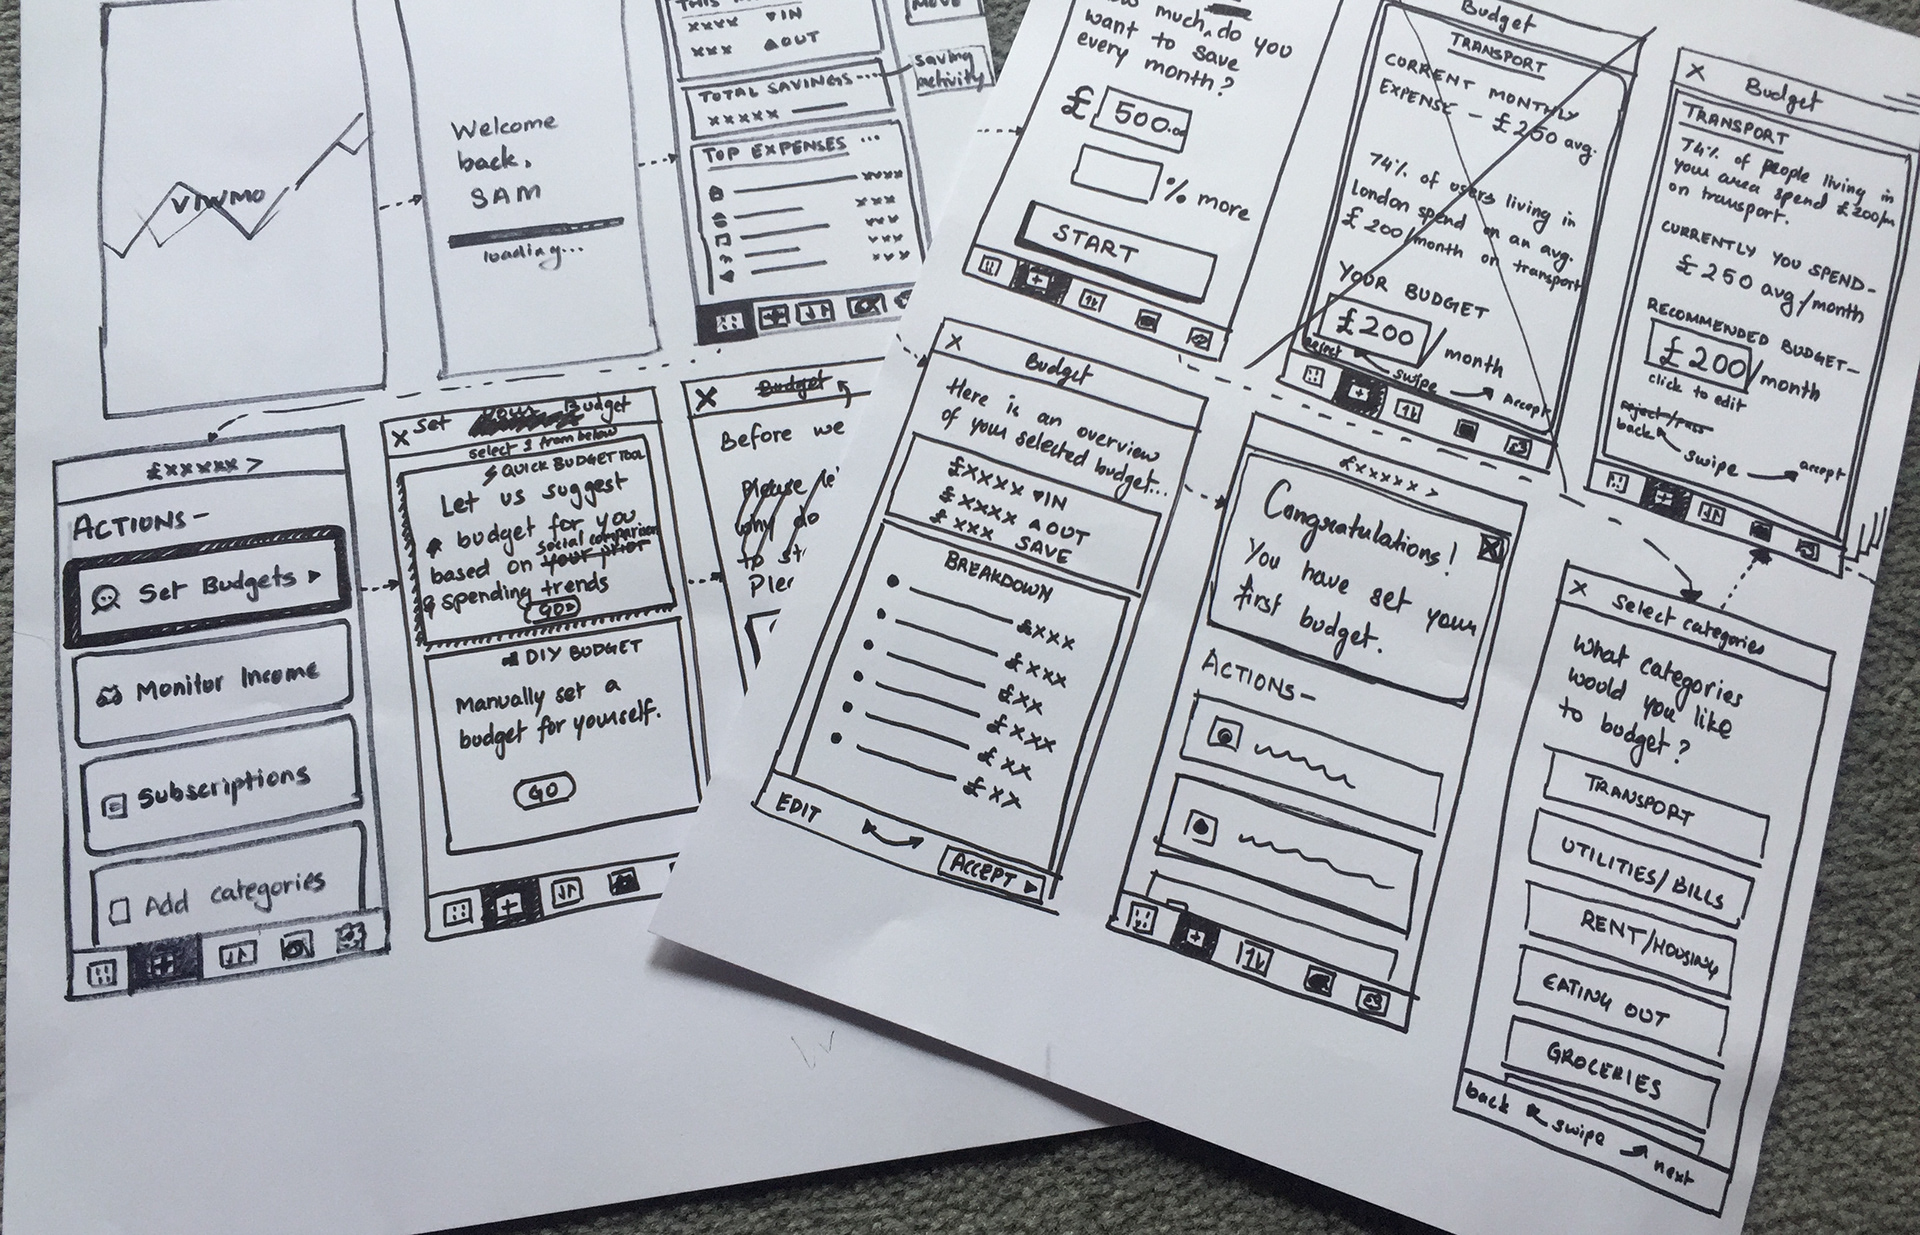 VIWMO
Welcome
back,
SAM
loading...
xxxx ▾IN
xxx ▲OUT
TOTAL SAVINGS ...
xxxxx
TOP EXPENSES ...
xxxx
xxx
xxx
xxx
xxx
MOVE
saving
activity
£xxxxx >
ACTIONS -
Set Budgets ▸
Monitor Income
Subscriptions
Add categories
X Set Budget
select 1 from below
QUICK BUDGET TOOL
Let us suggest
a budget for you
social comparison
based on your prior
& spending trends
GO
DIY BUDGET
Manually set a
budget for yourself.
GO
X Budget
Before we
Please
why do
to st
Plea
much do you
want to save
every month?
£ 500.00
% more
START
Budget
TRANSPORT
CURRENT MONTHLY
EXPENSE - £250 avg.
74% of users living in
London spend on an avg.
£200/month on transport
YOUR BUDGET
£200 / month
reject
swipe
Accept
X Budget
TRANSPORT
74% of people living in
your area spend £200/m
on transport.
CURRENTLY YOU SPEND-
£250 avg/month
RECOMMENDED BUDGET-
£200 /month
click to edit
reject/pass
back swipe accept
X Budget
Here is an overview
of your selected budget...
£xxxx ▾IN
£xxxx ▲OUT
£xxx SAVE
BREAKDOWN
£xxx
£xxx
£xx
£xxx
£xx
£xx
EDIT
ACCEPT ▷
£xxxxx >
Congratulations! X
You have set your
first budget.
ACTIONS-
X Select categories
What categories
would you like
to budget?
TRANSPORT
UTILITIES/BILLS
RENT/HOUSING
EATING OUT
GROCERIES
back swipe next